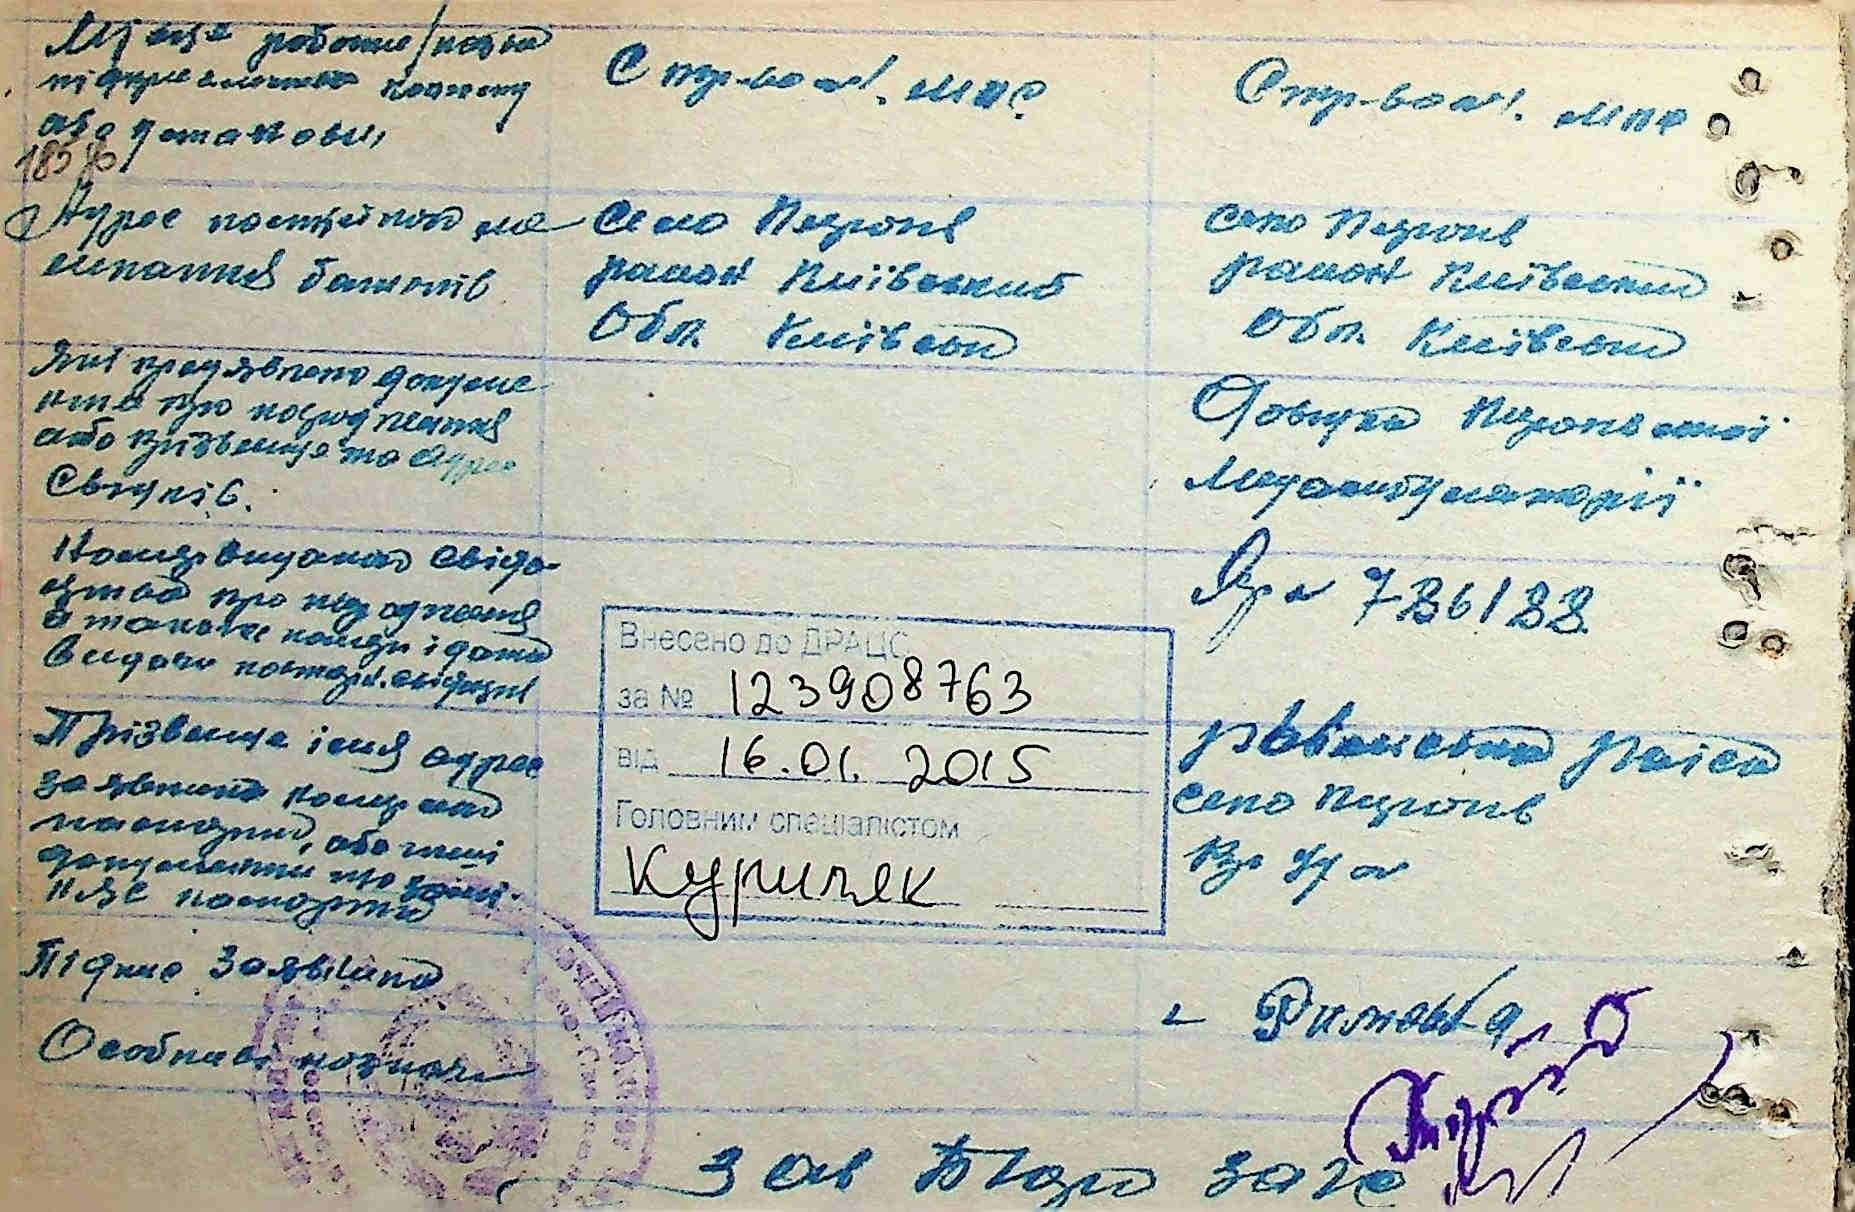 Місце роботи/назва
підприємства колгоспу
або установи,
Стр-во м. МПС
Стр-во м. МПС
185
Адрес постійного ме
шкання батьків
Село Пирогів
район Київський
Обл. Київська
село Пирогів
район Київський
Обл. Київська
Які пред'явлено докуме
нти про народження
або прізвище та адрес
Свідків.
Довідка Пирогівської
Медамбулаторії
Номер виданого свідо-
цтва про народження
а також номер і дата
видачі повторн. свідоцтв
Яра 786188
Внесено до ДРАЦС
за № 123908763
від 16.01.2015
Головним спеціалістом
Куричяк
Прізвище імя адрес
заявника номер його
паспорту, або інші
документи що замі-
няє паспорти
Раіса
село Пирогів
Підпис Заявника
Особливі познач
Зав Бюро загс